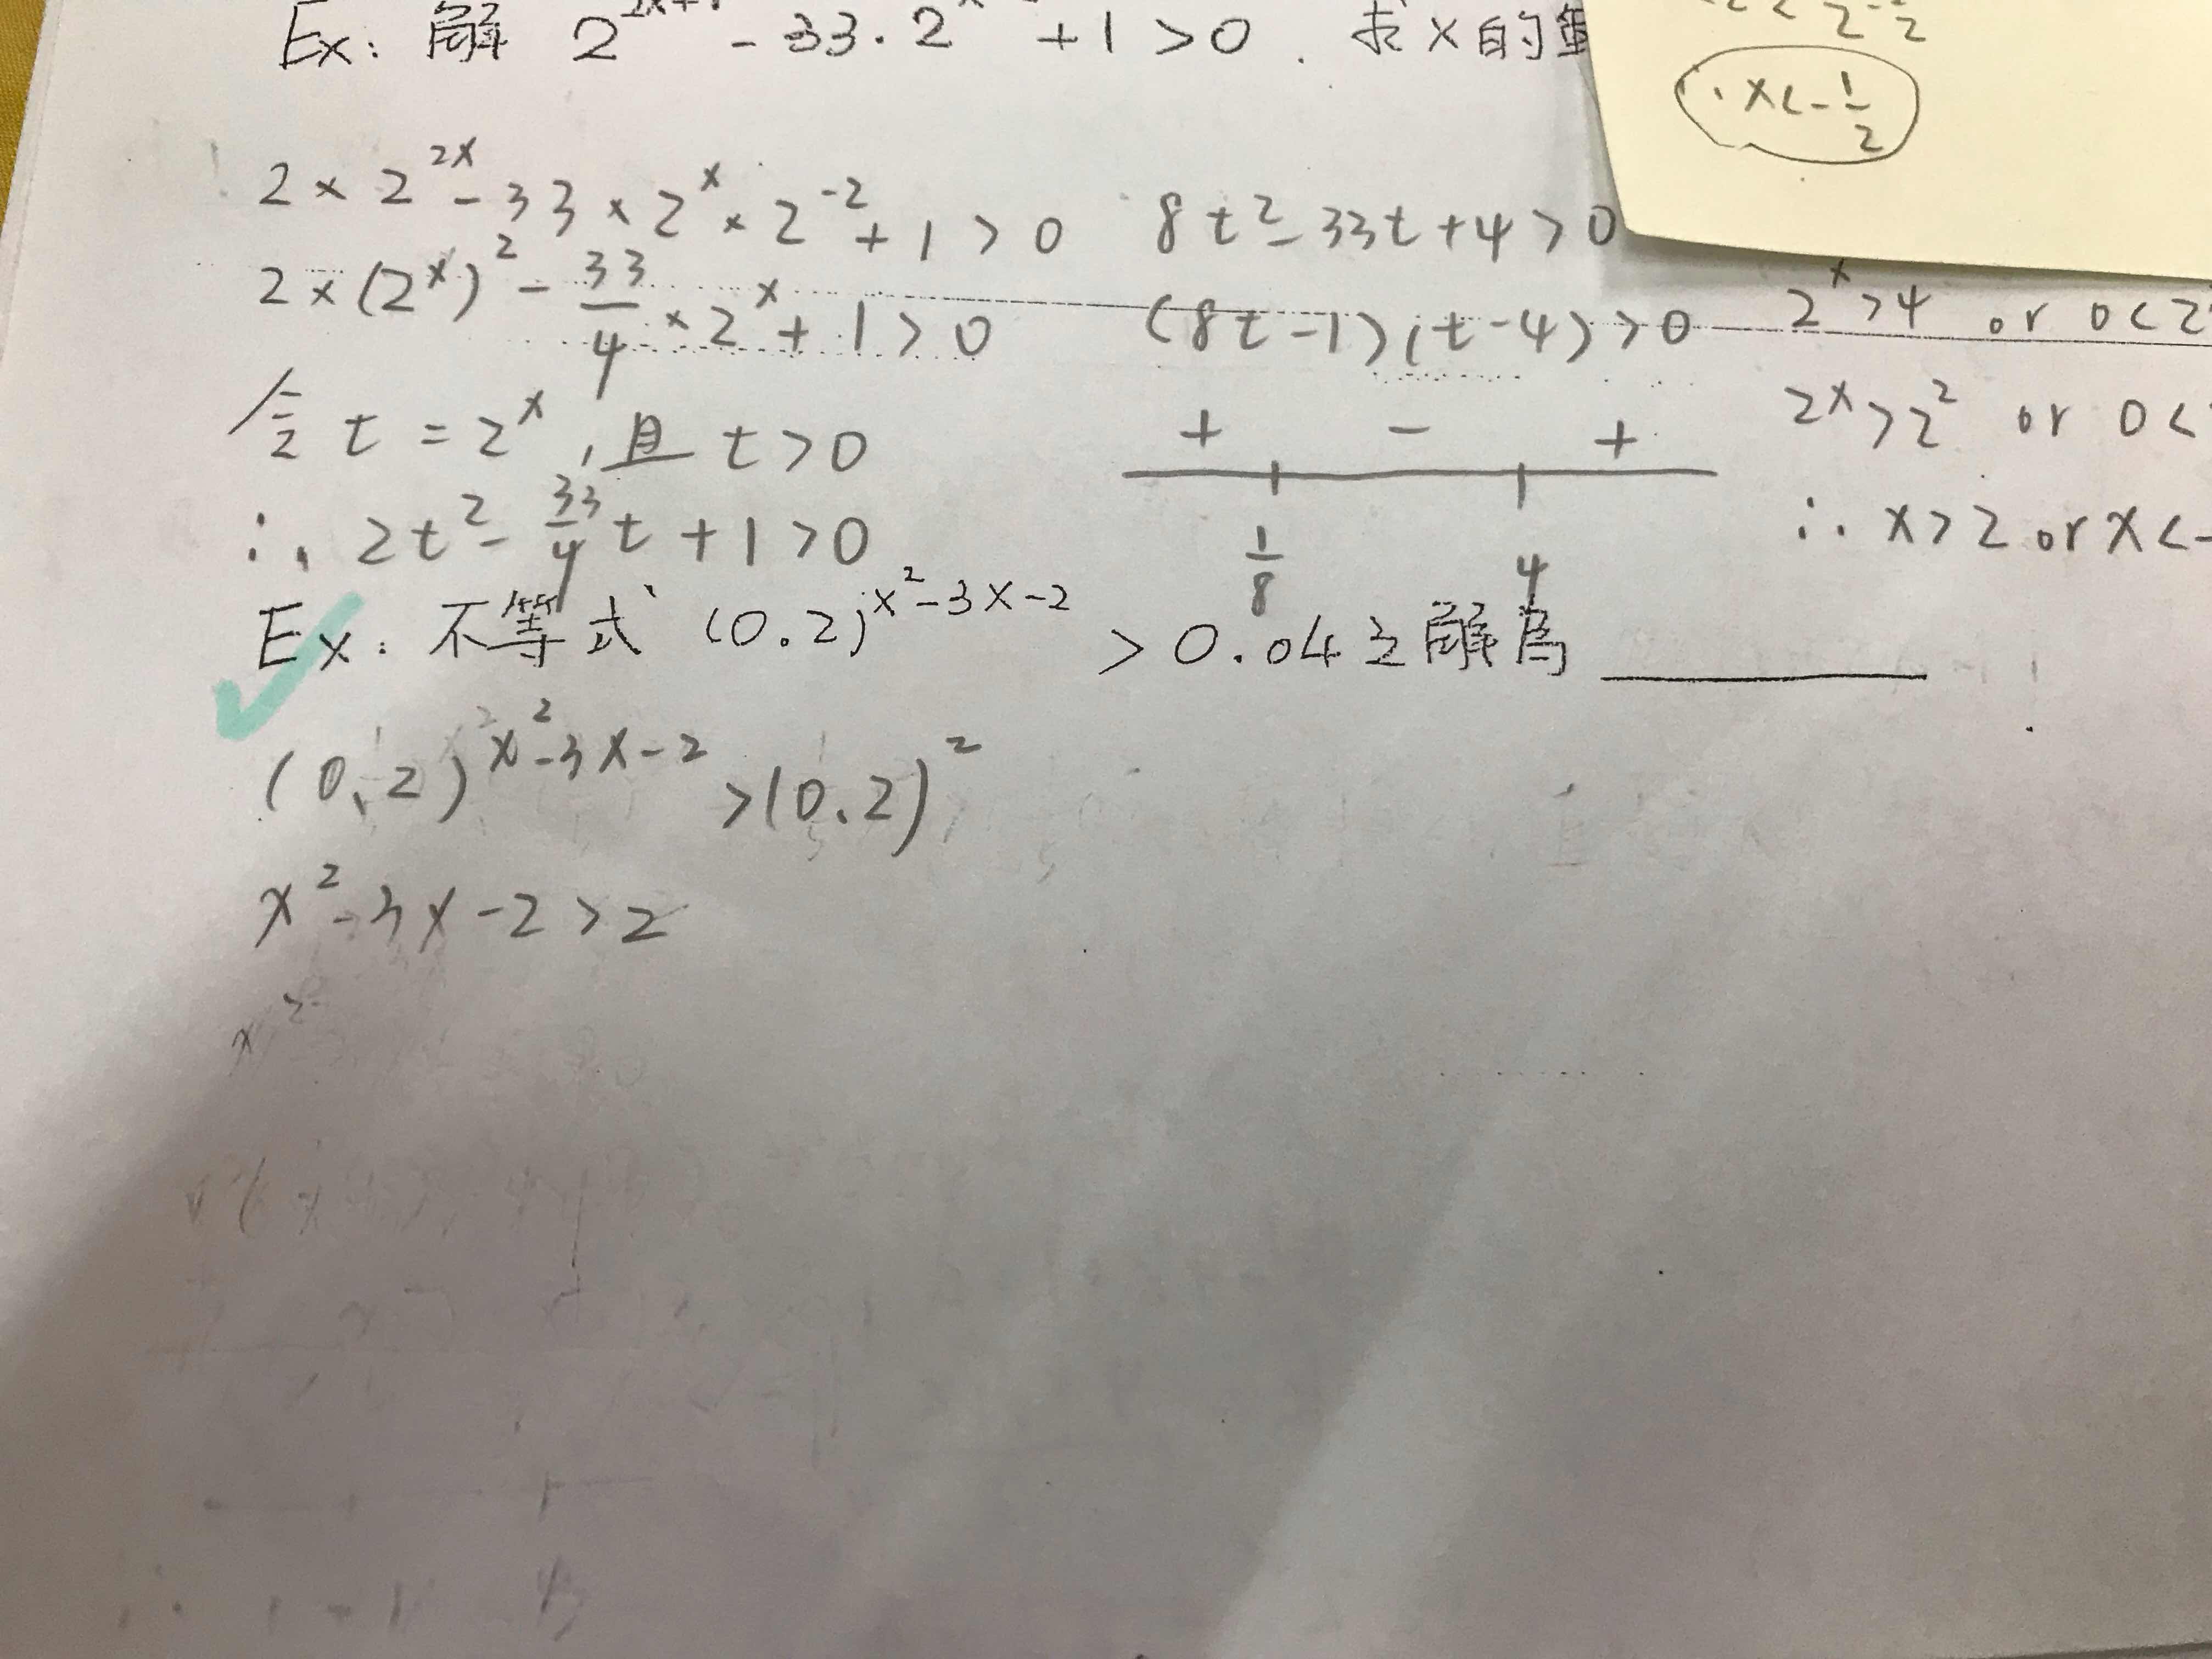 Ex: 解 2^{2x+1} - 33·2^x + 1 > 0 . 求x的
2 × 2^{2x} - 33 × 2^x × 2^{-2} + 1 > 0
2 × (2^x)^2 - 33/4 × 2^x + 1 > 0
令 t = 2^x , 且 t > 0
∴ 2t^2 - 33/4 t + 1 > 0
8t^2 - 33t + 4 > 0
(8t - 1)(t - 4) > 0
+ - +
1/8 4
x < -1/2
2^x > 4 or 0 < 2
2^x > 2^2 or 0 <
∴ x > 2 or x < -
Ex: 不等式 (0.2)^{x^2-3x-2} > 0.04 之解為 ______
(0.2)^{x^2-3x-2} > (0.2)^2
x^2 - 3x - 2 > 2
x^2